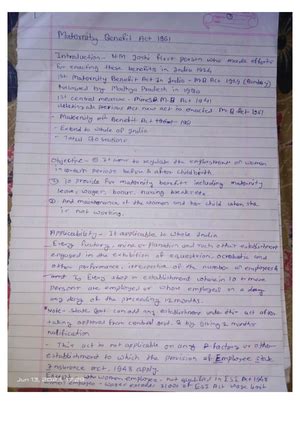 Maternity Benefit Act 1961
Introduction - N.M Joshi first person who made efforts
for enacting these benefits in India 1924
1st Maternity Benefit Act In India - M.B Act 1929 (Bombay)
followed by Madhya Pradesh in 1930
1st central mention - Mines M.B Act 1941
all previous Act now act to enacted M.B Act 1961
Maternity Benefit Act 1961
- Extend to whole of India
- Total 30 sections
Objective - ① To regulate the employment of women
in certain periods before & after child birth.
② To provide for maternity benefit including maternity
leave, wages, bonus, nursing breaks etc
③ And maintenance of the women and her child when she
is not working.
Applicability - It applicable to whole India
- Every factory, mine or plantation and such other establishment
engaged in the exhibition of equestrian, acrobatic and
other performance, irrespective of the number of employees
- Every shop or establishment wherein 10 or more
persons are employed or whose employees on a day
any day of the preceding 12 months.
Note - State Govt can add any establishment under this act after
taking approval from central govt & by giving 2 months
notification
- This act is not applicable on any factory or other
establishment to which the provision of Employee State
Insurance act, 1948 apply.
Except women employees not qualified in ESI Act 1948
Jun 13, 2023, 17:20